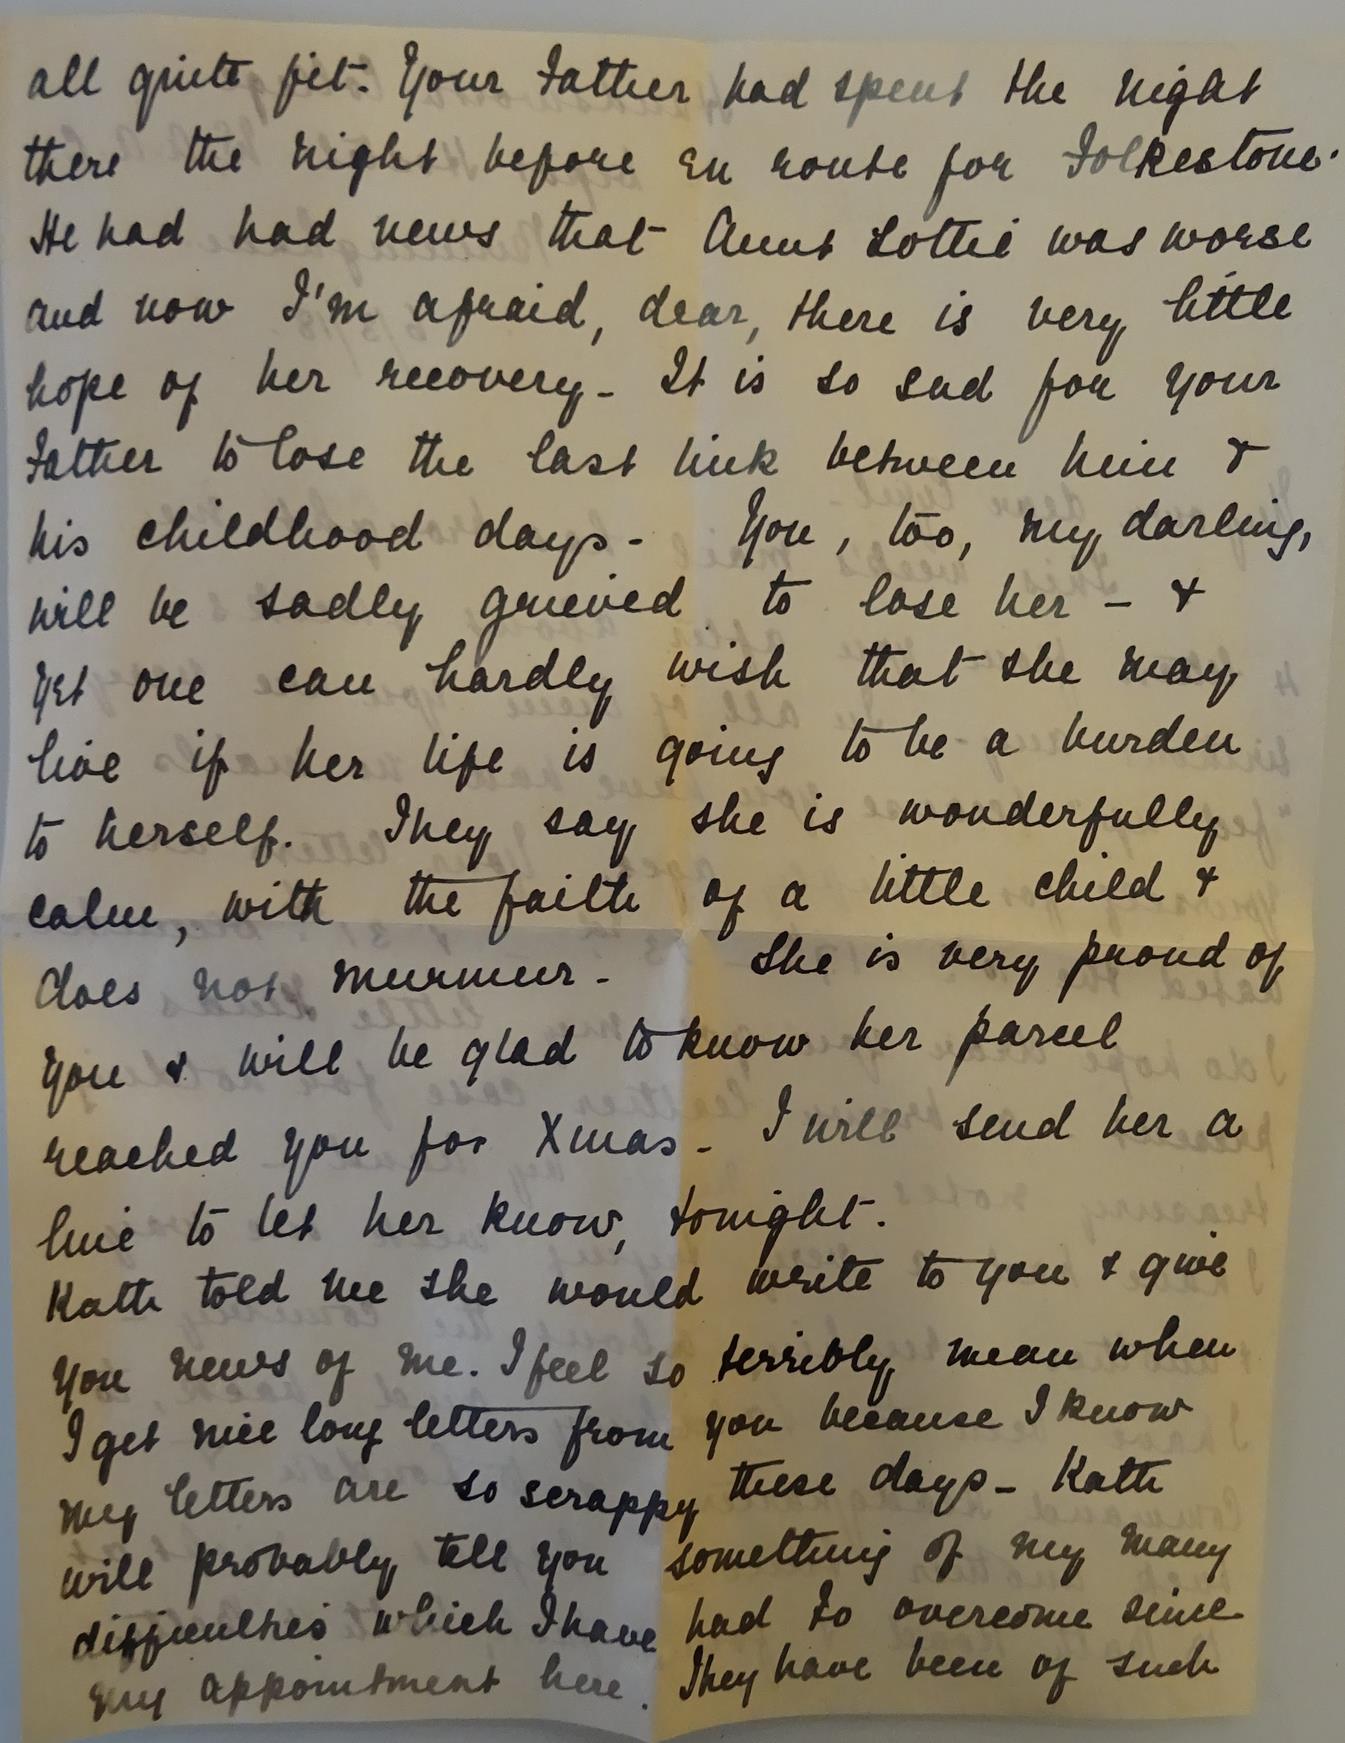 all quite fit. Your Father had spent the night
there the night before en route for Folkestone.
He had had news that Aunt Lottie was worse
and now I'm afraid, dear, there is very little
hope of her recovery - It is so sad for your
Father to lose the last link between him &
his childhood days - You, too, my darling,
will be sadly grieved to lose her - &
yet one can hardly wish that she may
live if her life is going to be a burden
to herself. They say she is wonderfully
calm, with the faith of a little child &
does not murmur - She is very proud of
you & will be glad to know her parcel
reached you for Xmas - I will send her a
line to let her know, tonight.
Kath told me she would write to you & give
you news of me. I feel so terribly mean when
I get nice long letters from you because I know
my letters are so scrappy these days - Kath
will probably tell you something of my many
difficulties which I have had to overcome since
my appointment here. They have been of such